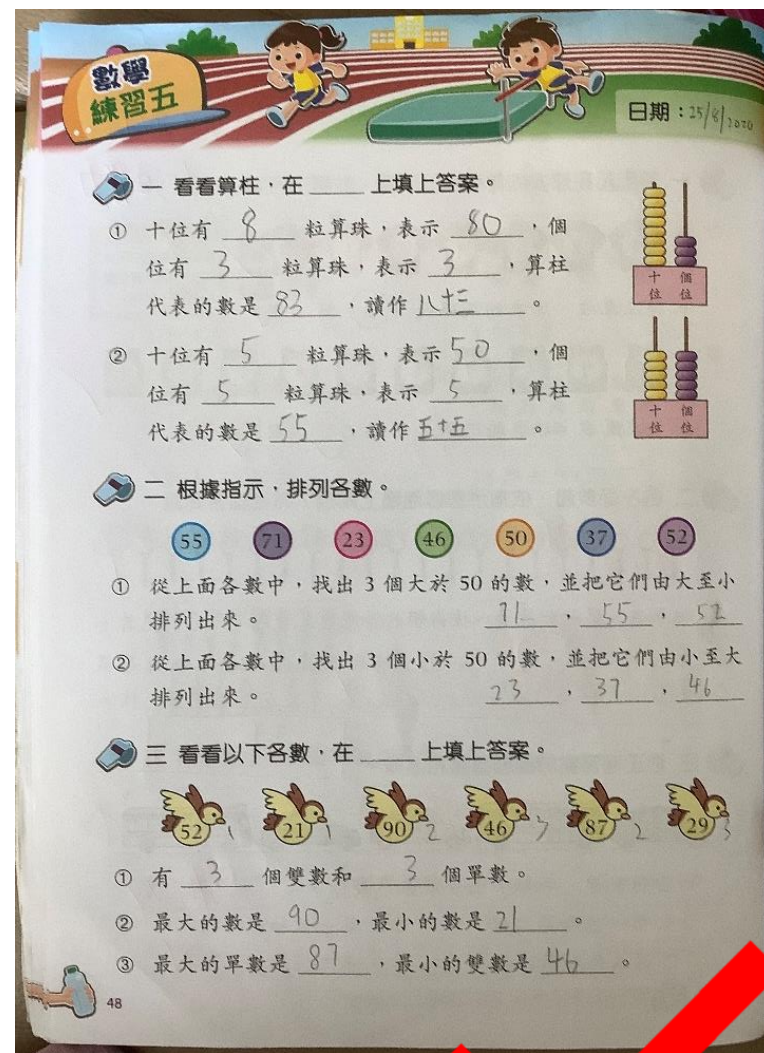 數學
練習五
日期：25/8/2020
一 看看算柱，在____上填上答案。
① 十位有 8 粒算珠，表示 80 ，個
位有 3 粒算珠，表示 3 ，算柱
代表的數是 83 ，讀作 八十三 。
十 個
位 位
② 十位有 5 粒算珠，表示 50 ，個
位有 5 粒算珠，表示 5 ，算柱
代表的數是 55 ，讀作 五十五 。
十 個
位 位
二 根據指示，排列各數。
55 71 23 46 50 37 52
① 從上面各數中，找出 3 個大於 50 的數，並把它們由大至小
排列出來。 71 ， 55 ， 52
② 從上面各數中，找出 3 個小於 50 的數，並把它們由小至大
排列出來。 23 ， 37 ， 46
三 看看以下各數，在____上填上答案。
52 1 21 1 90 2 46 3 87 2 29 3
① 有 3 個雙數和 3 個單數。
② 最大的數是 90 ，最小的數是 21 。
③ 最大的單數是 87 ，最小的雙數是 46 。
48